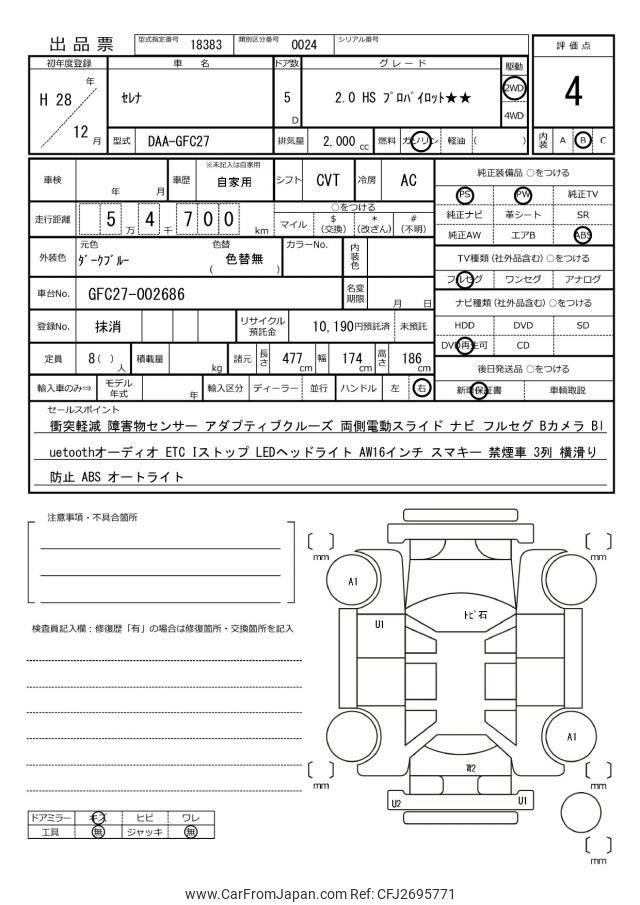 出品票
型式指定番号 18383 類別区分番号 0024 シリアル番号
評価点
4
内装 A B C
初年度登録 車名 ドア数 グレード 駆動
H 28 年 / 12 月
ｾﾚﾅ
5 D
2.0 HS ﾌﾟﾛﾊﾟｲﾛｯﾄ★★
2WD
4WD
型式 DAA-GFC27 排気量 2,000 cc 燃料 ガソリン 軽油 ( )
車検 年 月 車歴 ※未記入は自家用 自家用 シフト CVT 冷房 AC
走行距離 5 万 4 千 7 0 0 km
○をつける
マイル $(交換) *(改ざん) #(不明)
外装色 元色 ﾀﾞｰｸﾌﾞﾙｰ 色替 ( 色替無 ) カラーNo. 内装色
車台No. GFC27-002686 名変期限 月 日
登録No. 抹消 リサイクル預託金 10,190円預託済 未預託
定員 8( ) 人 積載量 kg 諸元 長さ 477 cm 幅 174 cm 高さ 186 cm
輸入車のみ⇒ モデル年式 年 輸入区分 ディーラー 並行 ハンドル 左 右
純正装備品 ○をつける
PS PW 純正TV
純正ナビ 革シート SR
純正AW エアB ABS
TV種類(社外品含む) ○をつける
フルセグ ワンセグ アナログ
ナビ種類(社外品含む) ○をつける
HDD DVD SD
DVD再生可 CD
後日発送品 ○をつける
新車保証書 車輌取説
セールスポイント
衝突軽減 障害物センサー アダプティブクルーズ 両側電動スライド ナビ フルセグ Bカメラ Bl
uetoothオーディオ ETC Iストップ LEDヘッドライト AW16インチ スマキー 禁煙車 3列 横滑り
防止 ABS オートライト
注意事項・不具合箇所
検査員記入欄：修復歴「有」の場合は修復箇所・交換箇所を記入
ドアミラー キズ ヒビ ワレ
工具 無 ジャッキ 無
mm
mm
A1
ﾄﾋﾞ石
U1
A1
W2
mm
mm
U2
U1
mm
www.CarFromJapan.com Ref: CFJ2695771